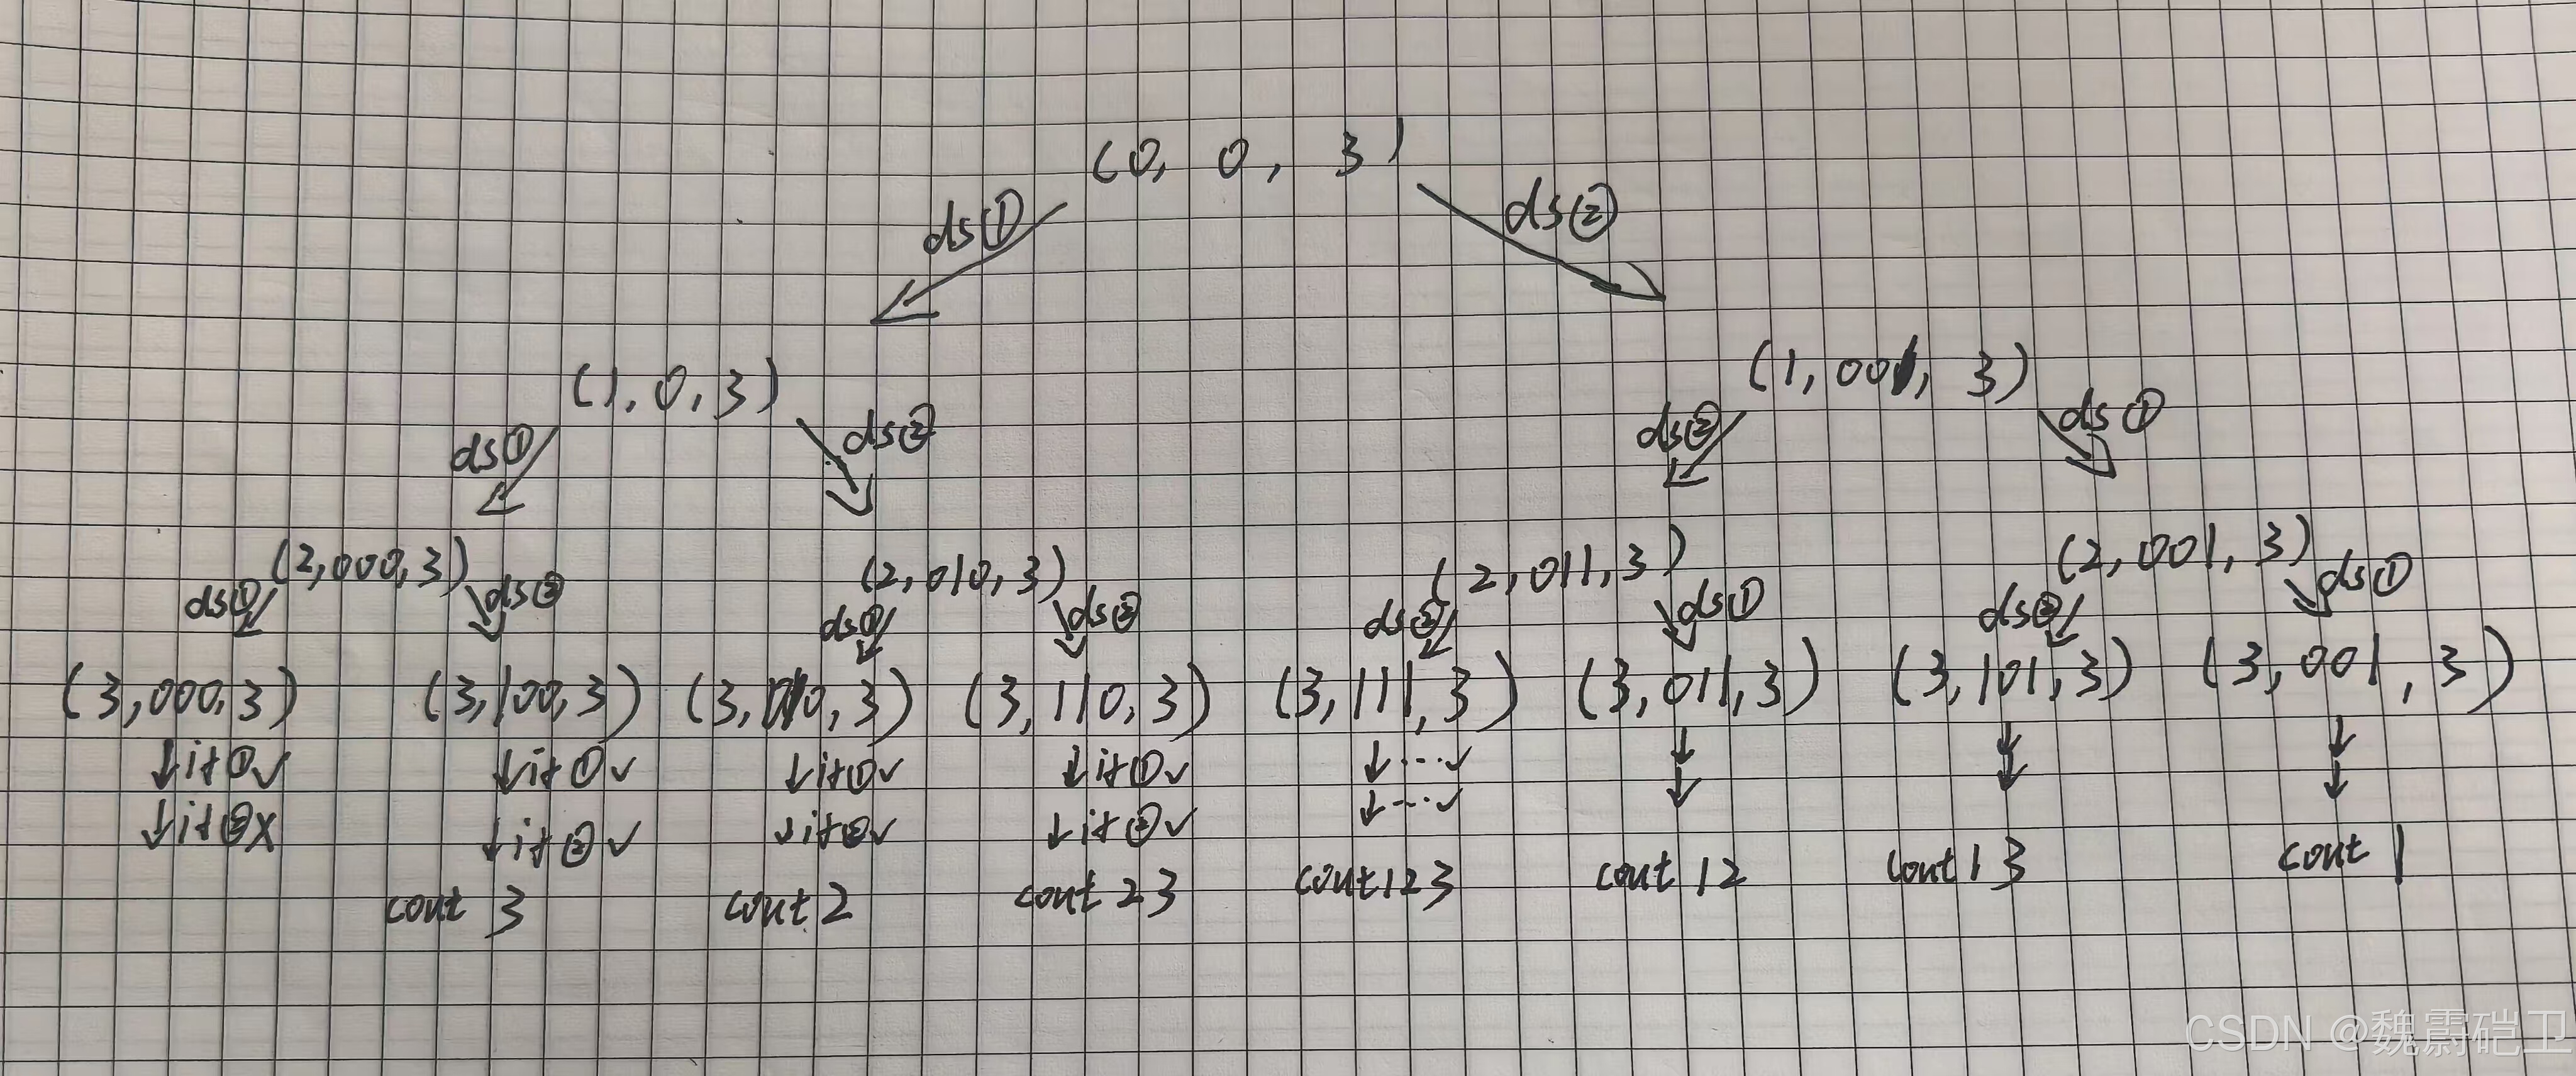 (0, 0, 3)
ds① ds②
(1, 0, 3) (1, 001, 3)
ds① ds② ds② ds①
(2, 000, 3) (2, 010, 3) (2, 011, 3) (2, 001, 3)
ds① ds② ds① ds② ds② ds① ds② ds①
(3, 000, 3) (3, 100, 3) (3, 010, 3) (3, 110, 3) (3, 111, 3) (3, 011, 3) (3, 101, 3) (3, 001, 3)
↓if①✓ ↓if①✓ ↓if①✓ ↓if①✓ ↓...✓ ↓ ↓ ↓
↓if②x ↓if②✓ ↓if②✓ ↓if②✓ ↓...✓ ↓ ↓ ↓
cout 3 cout 2 cout 23 cout 123 cout 12 cout 13 cout 1
CSDN @魏霨硙卫